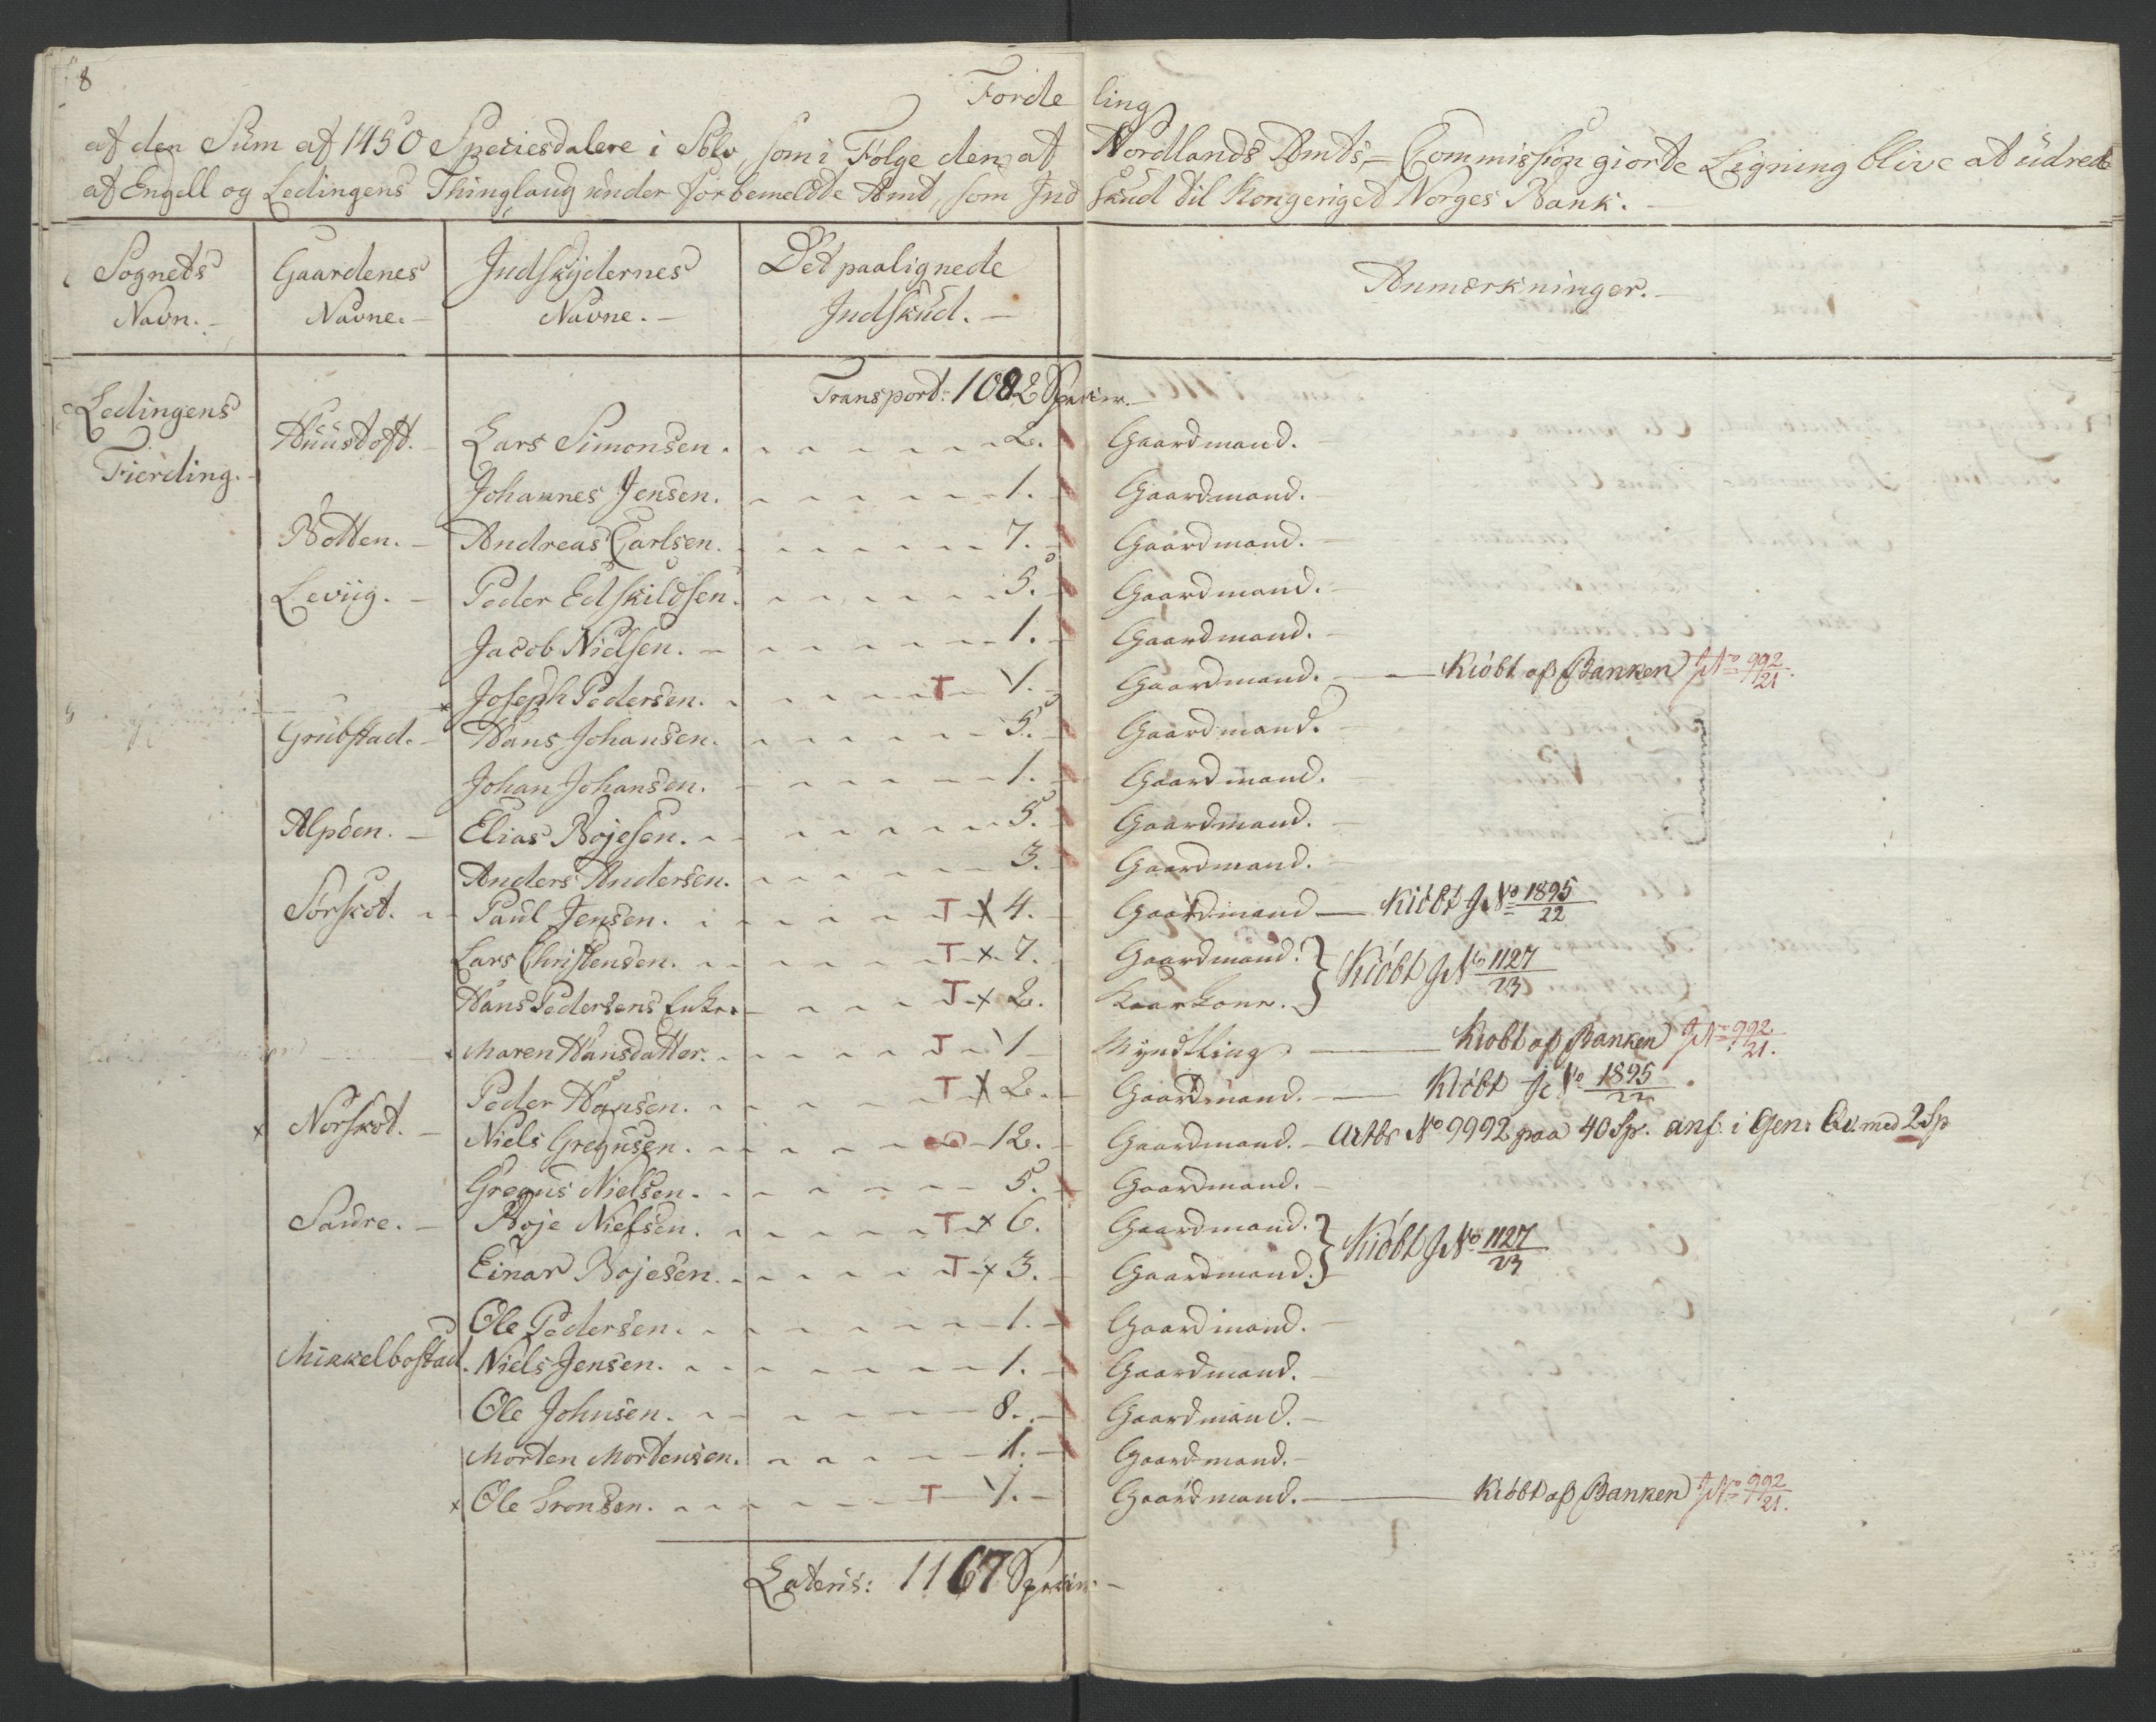 8
Fordeling
af den Sum af 1450 Speciesdalere i Sölv, som i Følge den af Nordlands Amts-Commission giorte Ligning blive at udrede
af Engell og Ledingens Thinglaug under forbemeldte Amt, som Indskud til Kongeriget Norges Bank.
Sognets Navn. Gaardenes Navne. Indskydernes Navne. Det paalignede Indskud. Anmærkninger.
Transport: 1082 Specier.
Ledingens Huustoft. Lars Simonsen. 2. Gaardmand.
Fierding. Johannes Jensen. 1. Gaardmand.
Botten. Andreas Carlsen. 7. Gaardmand.
Leviig. Peder Edskildsen. 5. Gaardmand.
Jacob Nielsen. 1. Gaardmand.
x Joseph Pedersen. T 1. Gaardmand. Kiöbt af Banken J No 992/21.
Grubstad. Hans Johansen. 5. Gaardmand.
Johan Johansen. 1. Gaardmand.
Alpöen. Elias Bojesen. 5. Gaardmand.
Anders Andersen. 3. Gaardmand.
Sörskot. Paul Jensen. T x 4. Gaardmand Kiöbt J No 1895/22
Lars Christensen. T x 7. Gaardmand. } Kiöbt J No 1127/23
Hans Pedersens Enke. T x 2. Kaarkone.
Maren Hansdatter. T 1 Myndtling Kiöbt af Banken J No 992/21.
Peder Hansen. T x 2. Gaardmand. Kiöbt J No 1895/22
x Norskot. Niels Gregusen. 12. Gaardmand. No 9992 paa 40 Sp. anf. i Gen: med 2 Sp
Gregus Nielsen. 5. Gaardmand.
Saure. Boje Nielsen. T x 6. Gaardmand. } Kiöbt J No 1127/23
Einar Bojesen. T x 3. Gaardmand.
Ole Pedersen. 1. Gaardmand.
Mikkelbostad. Niels Jensen. 1. Gaardmand.
Ole Johnsen. 8. Gaardmand.
Morten Mortensen. 1. Gaardmand.
x Ole Tronsen. T 1. Gaardmand. Kiöbt af Banken J No 992/21.
Lateris: 1167 Specier.